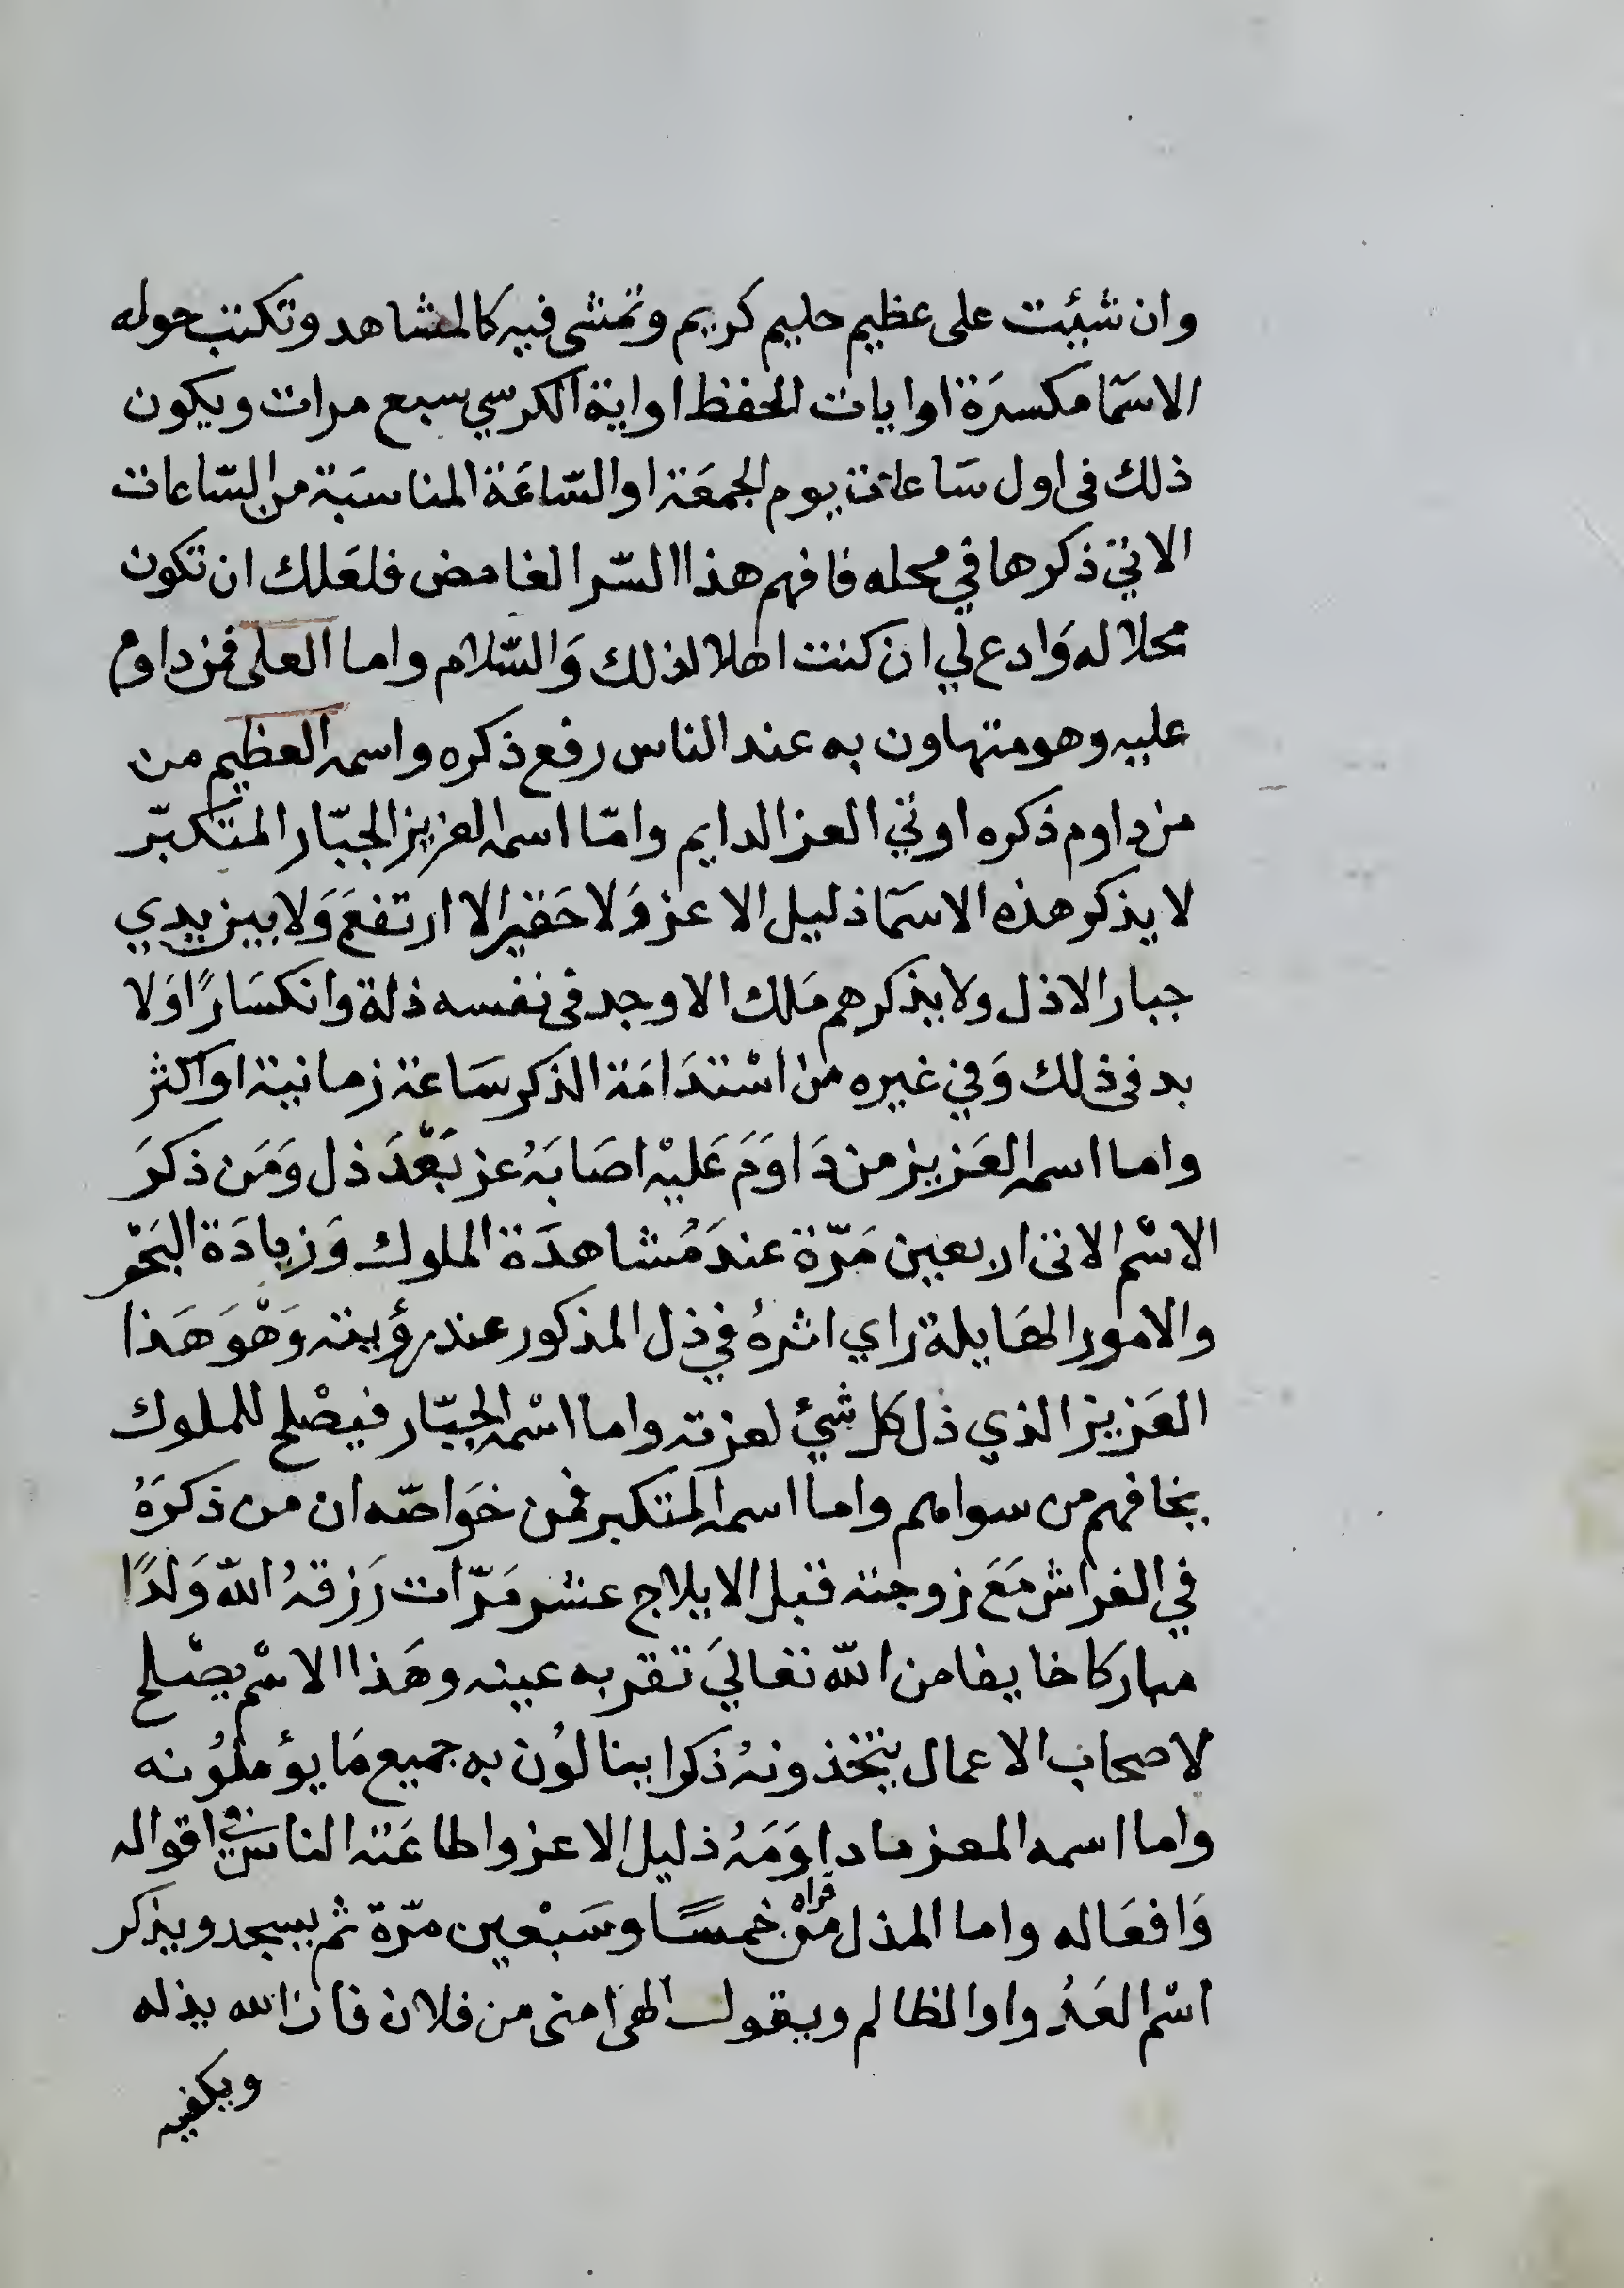 وان شئت على عظيم حليم كريم وتمشى فيه كالمشاهد وتكتب حوله
الاسمَا مكسرَة او ايات الحفظ او اية الكرسي سبع مرات ويكون
ذلك فى اول سَاعات يوم الجمعَة او السّاعَة المناسبَة من السّاعات
الاتي ذكرها في محله فافهم هذا السّر الغامض فلعَلك ان تكون
محلا له وَادع لي ان كنت اهلا لذلك وَالسّلام واما العلى فمن داوم
عليه وهو متهاون به عند الناس رفع ذكره واسمه العظيم من
من داوم ذكره اوتي العز الدايم وامّا اسمه العزيز الجبّار المتكبّر
لا يذكر هذه الاسمَا ذليل الا عز وَلا حَقير الا ارتفعَ وَلا بين يدي
جبار الا ذل ولا يذكرهم مَلك الا وجد فى نفسه ذلة وانكسَارًا وَلا
بد فى ذلك وَفي غيره من اسْتدَامَة الذكر سَاعة زمانية او اكثر
واما اسمه العَزيز من دَاوَمَ عَليْه اصَابَهُ عز بَعْدَ ذل وَمَن ذكرَ
الاسْم الاتى اربعين مَرّة عندَ مُشاهدَة الملوك وَزيادَة البَحْر
والامور الهَايلة راي اثرهُ في ذل المذكور عند رؤيته وَهْوَ هَذا
العَزيز الذي ذل كل شئ لعزته واما اسْمه الجبّار فيصْلح للملوك
يخافهم من سواهم واما اسمه المتكبر فمن خوَاصّه ان من ذكرَهُ
في الفراش مَعَ زوجته قبل الايلاج عشر مَرّات رَزقهُ اللّه وَلدًا
مباركا خايفا من اللّه تعاليَ تقر به عينه وهَذا الاسْم يصْلح
لاصحاب الاعمال يتخذونهُ ذكرا ينالوُن به جميع مَا يؤملوُنه
واما اسمه المعز ما داوَمَهُ ذليل الا عز واطاعَته الناس في اقواله
وَافعَاله واما المذل مَنْ قراه خمسًا وسَبْعين مرّة ثم يسجد ويذكر
اسْم العَدُو او الظالم ويقول الهى امنى من فلان فان الله يذله
ويكفيه